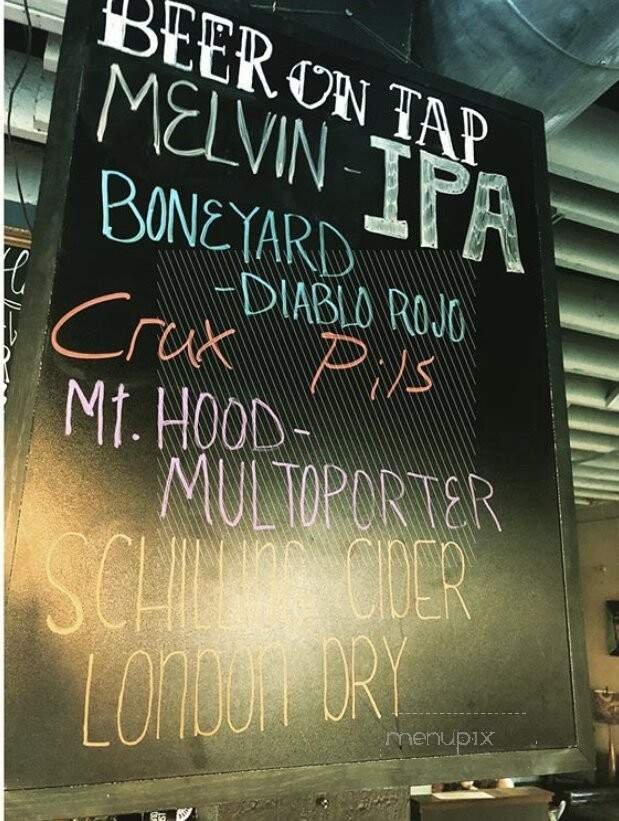 BEER ON TAP
MELVIN - IPA
BONEYARD
-DIABLO ROJO
Crux Pils
Mt. HOOD-
MULTOPORTER
SCHILLING CIDER
LONDON DRY
menupix